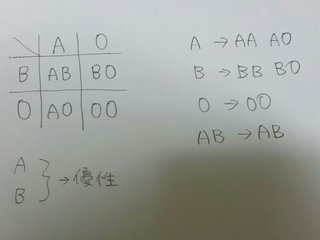 A O
B AB BO
O AO OO
A
B } → 優性
A → AA AO
B → BB BO
O → OO
AB → AB